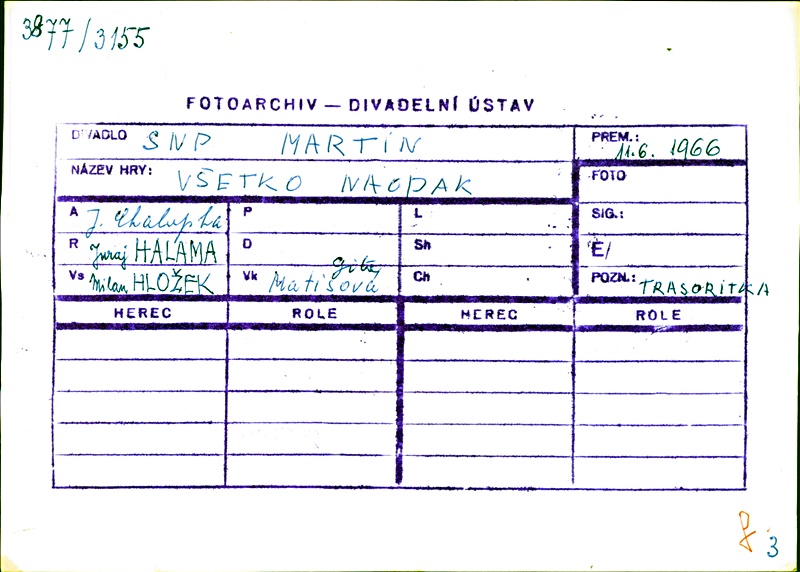 3877/3155
FOTOARCHIV — DIVADELNÍ ÚSTAV
DIVADLO SNP MARTIN
PREM.: 11.6. 1966
NÁZEV HRY: VŠETKO NAOPAK
FOTO
A J. Chalupka P L SIG.:
R Juraj HALAMA D Sh E/
Vs Milan HLOŽEK Vk Gita Matisová Ch POZN.: TRASORITKA
HEREC ROLE HEREC ROLE
3